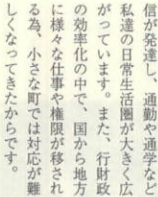 信が発達し、通勤や通学など
私達の日常生活圏が大きく広
がっています。また、行財政
の効率化の中で、国から地方
に様々な仕事や権限が移され
る為、小さな町では対応が難
しくなってきたからです。